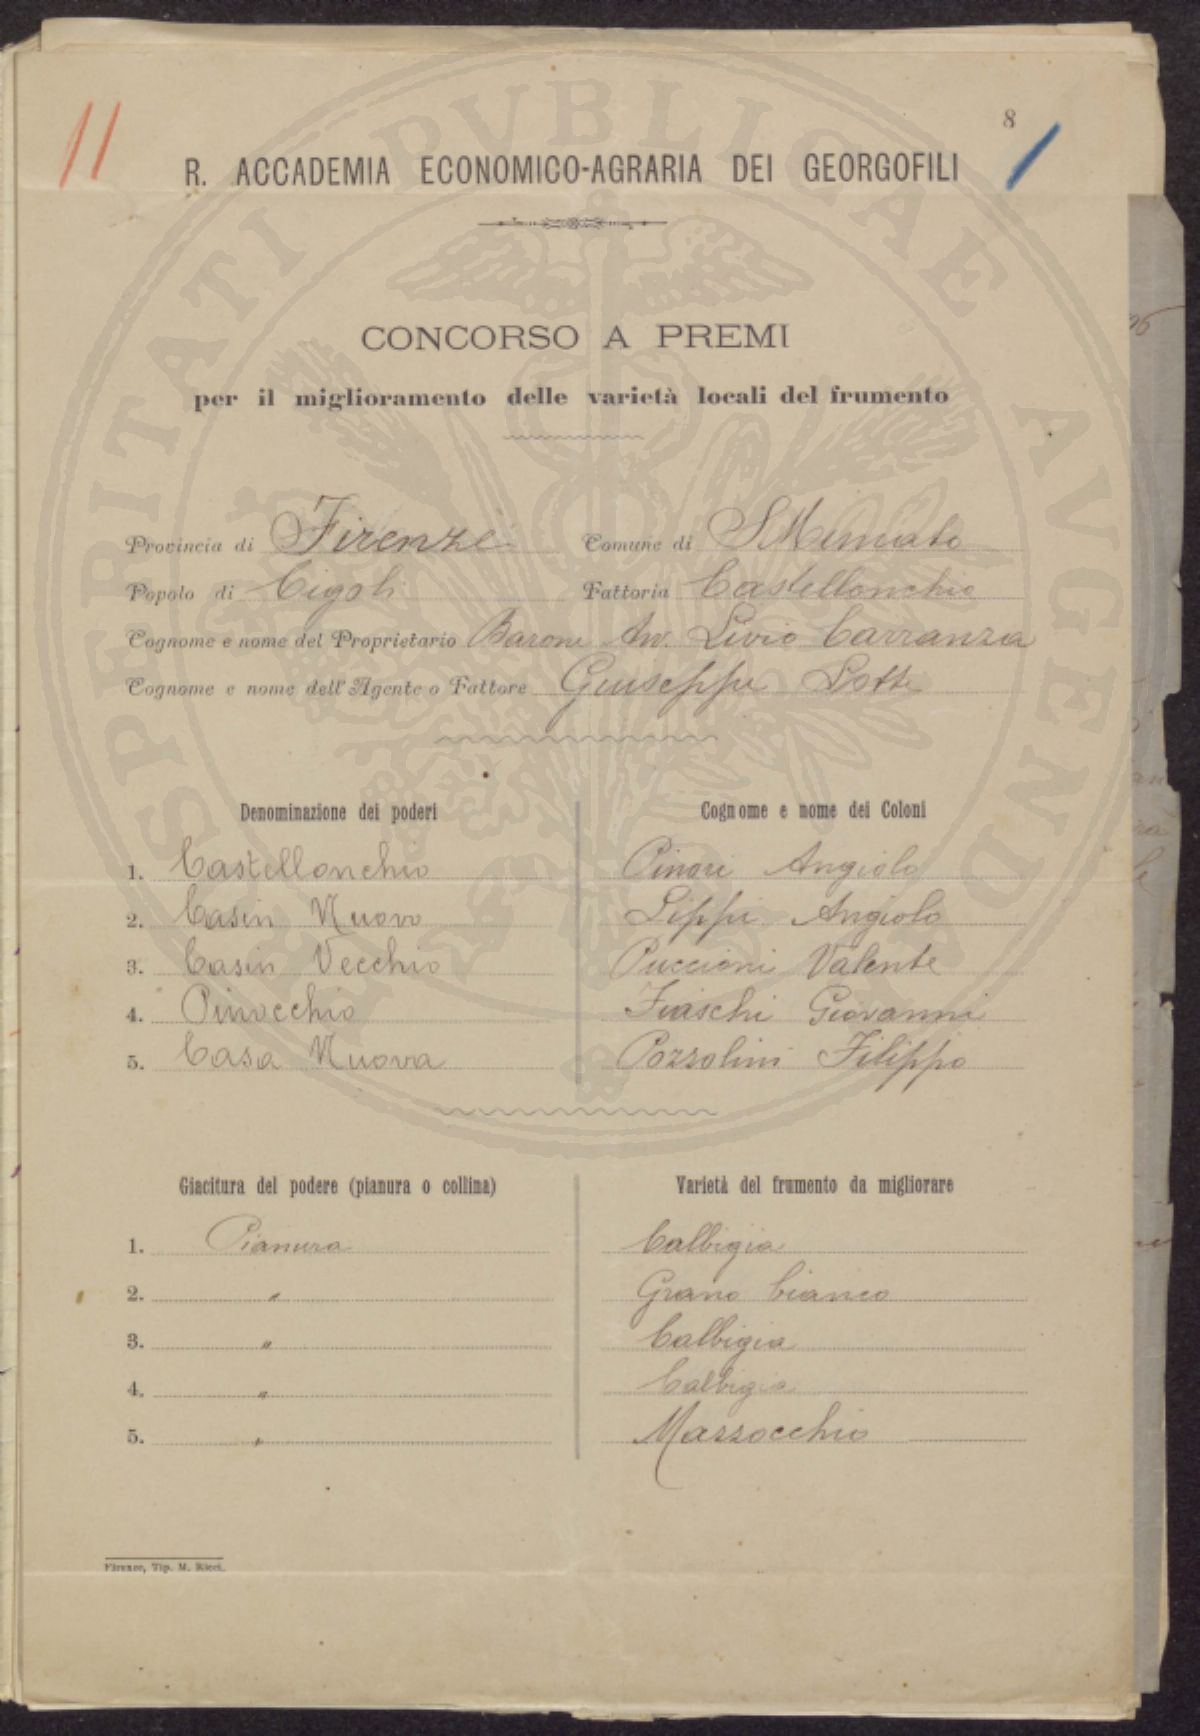 11
8
R. ACCADEMIA ECONOMICO-AGRARIA DEI GEORGOFILI
CONCORSO A PREMI
per il miglioramento delle varietà locali del frumento
Provincia di Firenze Comune di S Miniato
Popolo di Cigoli Fattoria Castellonchio
Cognome e nome del Proprietario Barone Av. Livio Carranza
Cognome e nome dell'Agente o Fattore Giuseppe Lotti
Denominazione dei poderi Cognome e nome dei Coloni
1. Castellonchio Pinori Angiolo
2. Casin Nuovo Lippi Angiolo
3. Casin Vecchio Puccioni Valente
4. Pinocchio Fiaschi Giovanni
5. Casa Nuova Pozzolini Filippo
Giacitura del podere (pianura o collina) Varietà del frumento da migliorare
1. Pianura Calbigia
2. " Grano bianco
3. " Calbigia
4. " Calbigia
5. " Mazzocchio
Firenze, Tip. M. Ricci.
PROSPERITATI PVBLICAE AVGENDAE